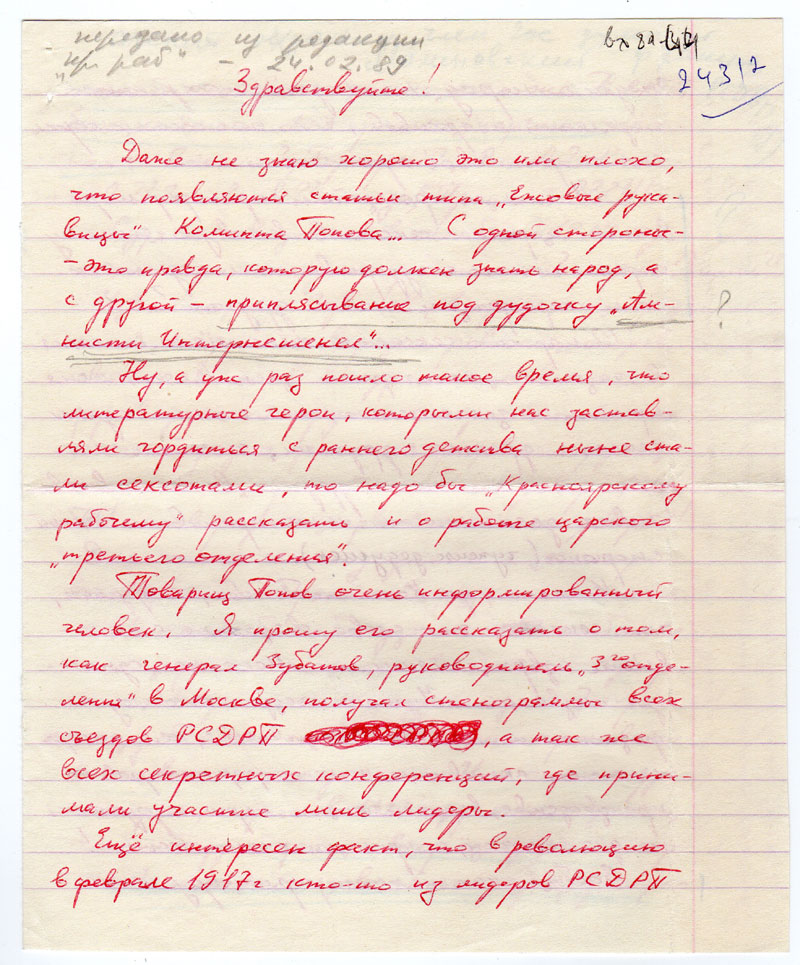 передано из редакции
"кр. раб" - 24.02.89
вх 82
24312
Здравствуйте!
Даже не знаю хорошо это или плохо,
что появляются статьи типа „Ежовые рука-
вицы" Коминта Попова... С одной стороны-
- это правда, которую должен знать народ, а
с другой - приплясывание под дудочку „Ам-
?
нисти Интернешенел"...
Ну, а уж раз пошло такое время, что
литературные герои, которыми нас застав-
ляли гордиться с раннего детства ныне ста-
ли сексотами, то надо бы „Красноярскому
рабочему" рассказать и о работе царского
„третьего отделения".
Товарищ Попов очень информированный
человек. Я прошу его рассказать о том,
как генерал Зубатов, руководитель „3го отде-
ления" в Москве, получал стенограммы всех
съездов РСДРП , а так же
всех секретных конференций, где прини-
мали участие лишь лидеры.
Ещё интересен факт, что в революцию
в феврале 1917г кто-то из лидеров РСДРП